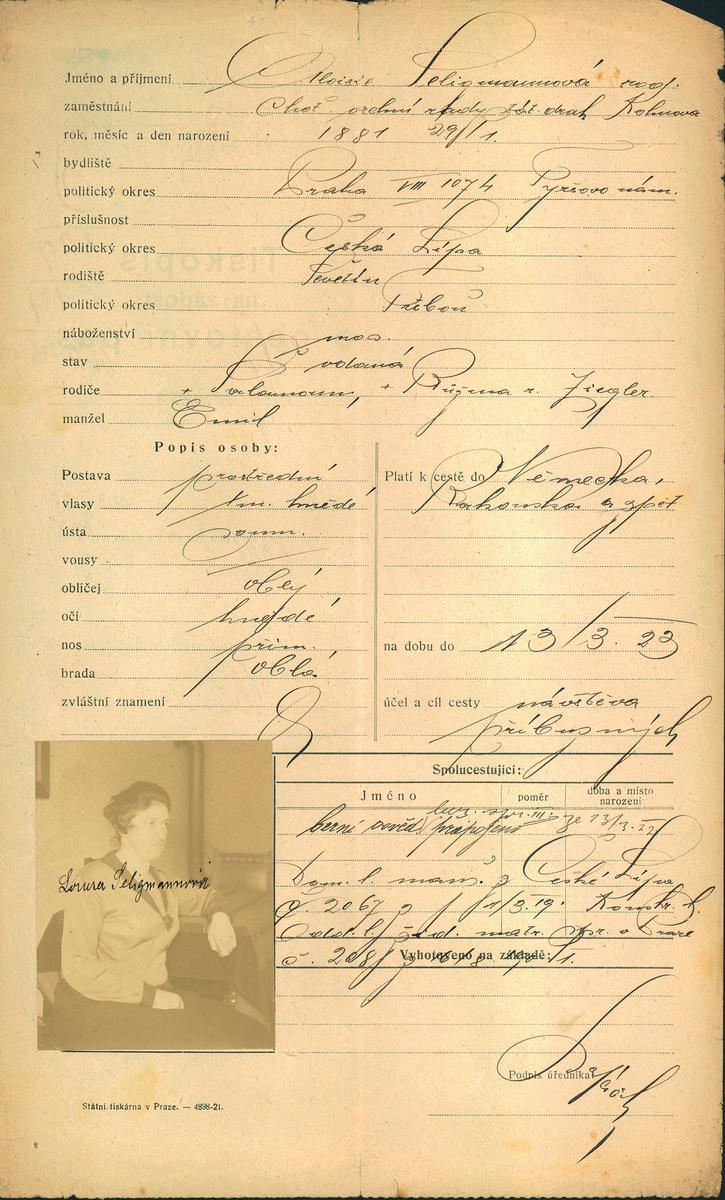 Jméno a příjmení Aloisie Seligmannová roz.
zaměstnání Choť vrchní rady stát. drah Kohnova
rok, měsíc a den narození 1881 29/1.
bydliště
politický okres Praha VIII 1074 Tyršovo nám.
příslušnost
politický okres Česká Lípa
rodiště Ševětín
politický okres Třeboň
náboženství mos.
stav vdaná
rodiče + Salamoun, + Růžena r. Ziegler.
manžel Emil
Popis osoby:
Postava prostřední
vlasy tm. hnědé
ústa soum.
vousy
obličej oblý
oči hnědé
nos přim.
brada oblá
zvláštní znamení
Platí k cestě do Německa,
Rakouska a zpět
na dobu do 13/3. 23
účel a cíl cesty návštěva
příbuzných
Spolucestující:
Jméno poměr doba a místo narození
berní osvěd. připojeno ze 13/3. 22
Dom. l. man. z České Lípy
č. 2067 z 1/3. 19. Konskr. l.
Odd. l. žid. matr. spr. v Praze
č. 208
Vyhotoveno na základě:
Louisa Seligmannová
Podpis úředníka:
Státní tiskárna v Praze. — 4898-21.